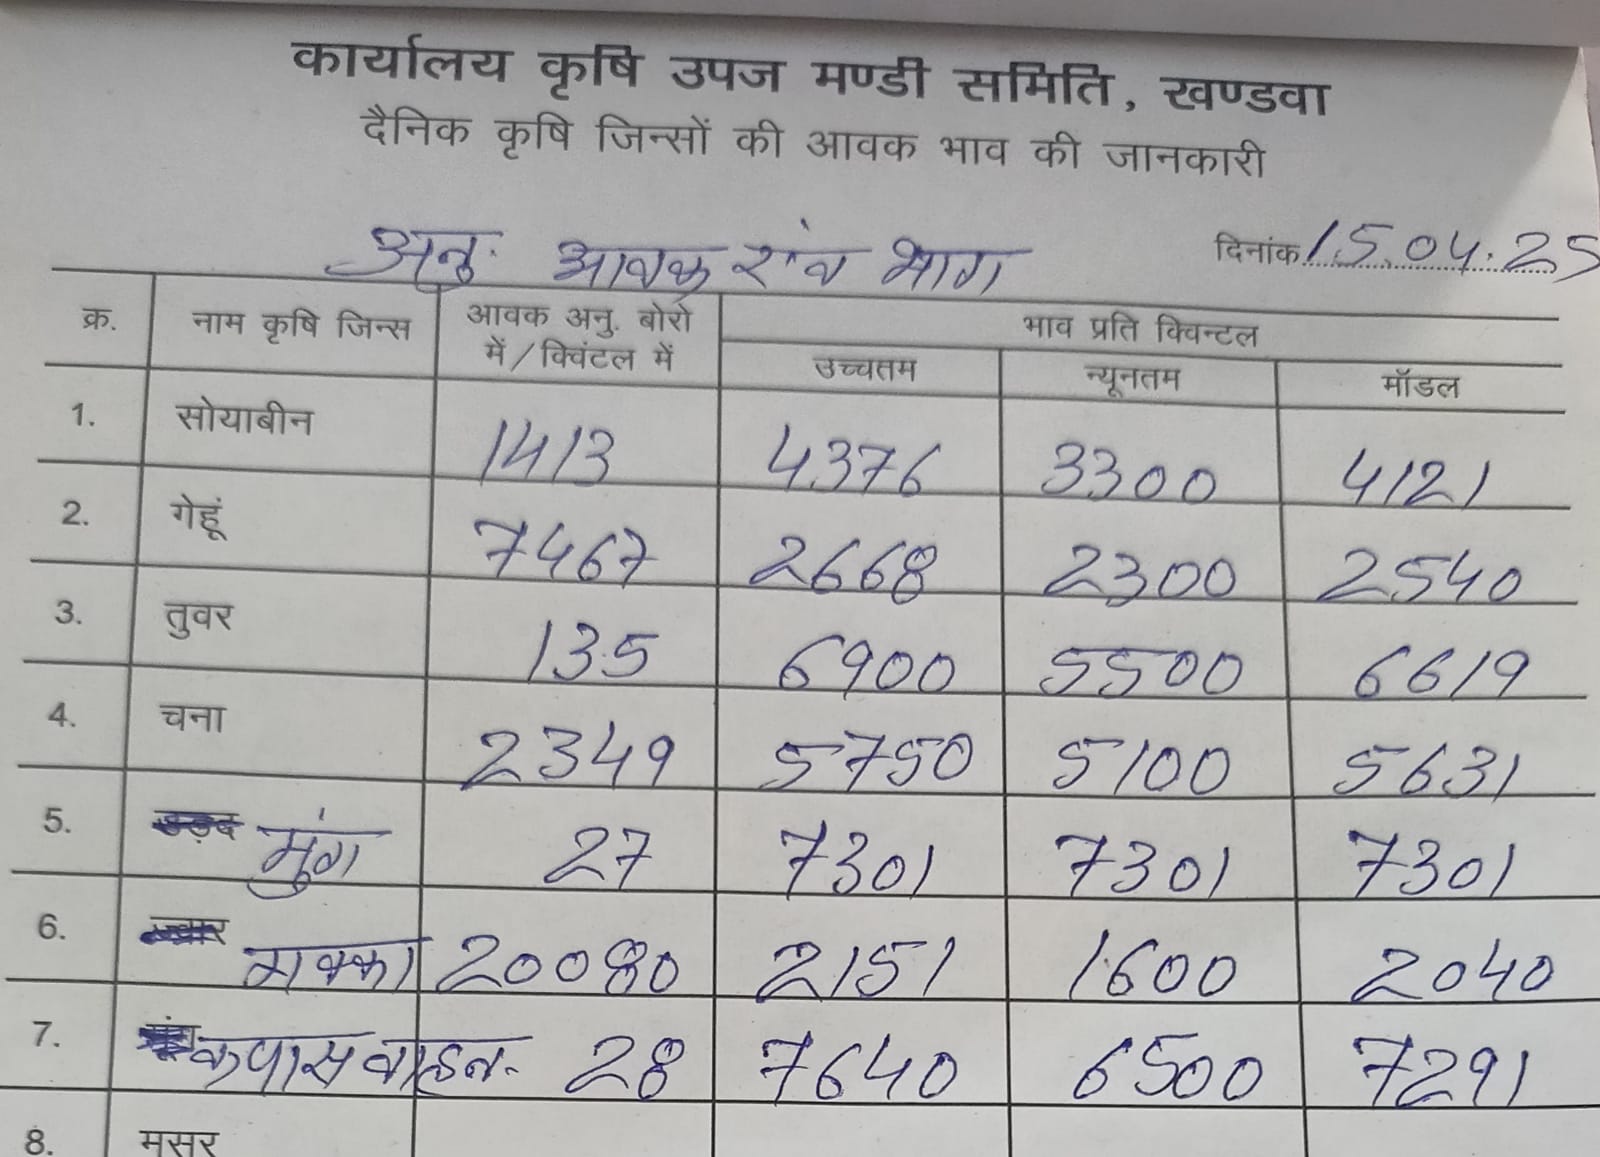 कार्यालय कृषि उपज मण्डी समिति, खण्डवा
दैनिक कृषि जिन्सों की आवक भाव की जानकारी
अनु. आवक एंव भाव दिनांक 15.04.25
क्र. नाम कृषि जिन्स आवक अनु. बोरो में/क्विंटल में भाव प्रति क्विन्टल
उच्चतम न्यूनतम मॉडल
1. सोयाबीन 1413 4376 3300 4121
2. गेहूं 7467 2668 2300 2540
3. तुवर 135 6900 5500 6619
4. चना 2349 5750 5100 5631
5. उड़द मुंग 27 7301 7301 7301
6. ज्वार मक्का 20080 2151 1600 2040
7. कपास वाहन- 28 7640 6500 7291
8. मसर